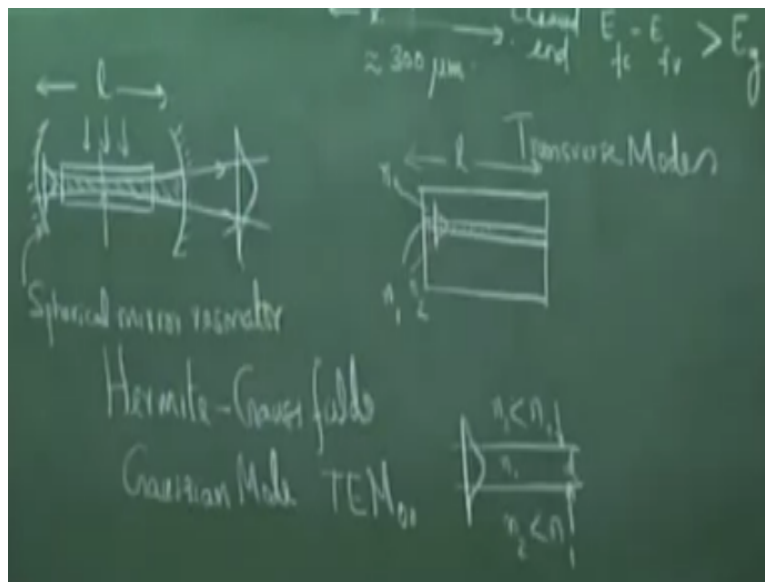 cleaved
≈ 300 μm
end E_fc - E_fv > E_g
l
Transverse Modes
l
n₂
n₁
n₂
Spherical mirror resonator
Hermite-Gauss fields
Gaussian Mode TEM₀₀
n₂ < n₁
n₁
d
n₂ < n₁